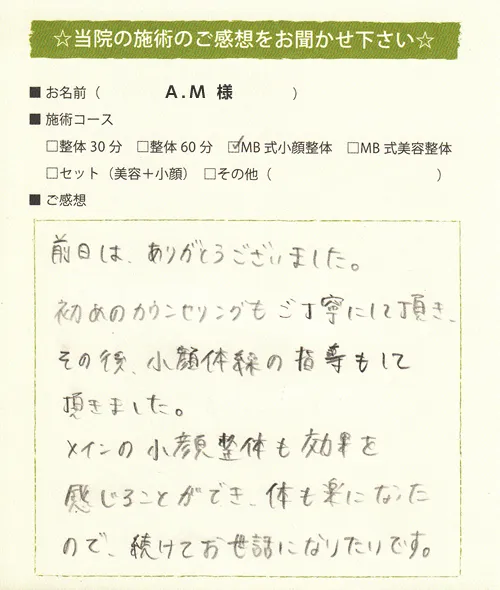 ☆当院の施術のご感想をお聞かせ下さい☆
■ お名前（ A.M 様 ）
■ 施術コース
□整体30分 □整体60分 ☑MB式小顔整体 □MB式美容整体
□セット（美容＋小顔） □その他（ ）
■ ご感想
前日は、ありがとうございました。
初めのカウンセリングもご丁寧にして頂き、
その後、小顔体操の指導もして
頂きました。
メインの小顔整体も効果を
感じることができ、体も楽になった
ので、続けてお世話になりたいです。